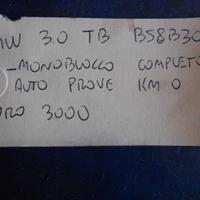 MW 3.0 TB B58B30
- MONOBLOCCO COMPLETO
AUTO PROVE KM 0
3000